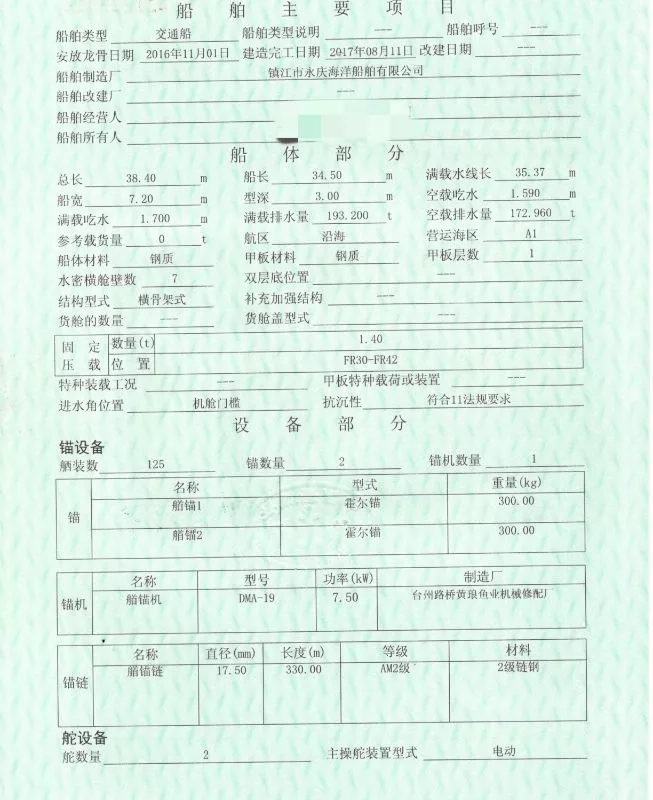 船舶主要项目
船舶类型 交通船 船舶类型说明 --- 船舶呼号 ---
安放龙骨日期 2016年11月01日 建造完工日期 2017年08月11日 改建日期 ---
船舶制造厂 镇江市永庆海洋船舶有限公司
船舶改建厂 ---
船舶经营人
船舶所有人
船体部分
总长 38.40 m 船长 34.50 m 满载水线长 35.37 m
船宽 7.20 m 型深 3.00 m 空载吃水 1.590 m
满载吃水 1.700 m 满载排水量 193.200 t 空载排水量 172.960 t
参考载货量 0 t 航区 沿海 营运海区 A1
船体材料 钢质 甲板材料 钢质 甲板层数 1
水密横舱壁数 7 双层底位置 ---
结构型式 横骨架式 补充加强结构 ---
货舱的数量 --- 货舱盖型式 ---
固定压载 数量(t) 1.40
位置 FR30-FR42
特种装载工况 --- 甲板特种载荷或装置 ---
进水角位置 机舱门槛 抗沉性 符合11法规要求
设备部分
锚设备
舾装数 125 锚数量 2 锚机数量 1
名称 型式 重量(kg)
锚 艏锚1 霍尔锚 300.00
艏锚2 霍尔锚 300.00
名称 型号 功率(kW) 制造厂
锚机 艏锚机 DMA-19 7.50 台州路桥黄琅鱼业机械修配厂
名称 直径(mm) 长度(m) 等级 材料
锚链 艏锚链 17.50 330.00 AM2级 2级链钢
舵设备
舵数量 2 主操舵装置型式 电动